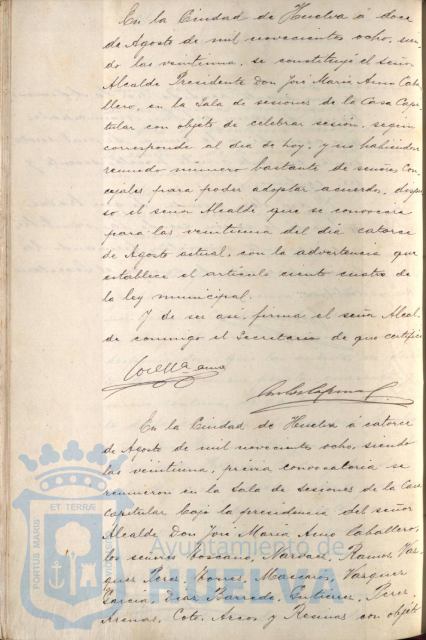 En la Ciudad de Huelva á doce
de Agosto de mil novecientos ocho, sien-
do las veintiuna, se constituyó el señor
Alcalde Presidente Don José Maria Amo Caba-
llero, en la Sala de sesiones de la Casa Capi-
tular con objeto de celebrar sesión, según
corresponde al dia de hoy; y no habiendose
reunido número bastante de señores Con-
cejales para poder adoptar acuerdos, dispu-
so el señor Alcalde que se convocara
para las veintiuna del dia catorce
de Agosto actual, con la advertencia que
establece el artículo ciento cuatro de
la ley municipal.
Y de ser asi, firma el señor Alcal-
de conmigo el Secretario de que certifico
José Mª Amo
En la Ciudad de Huelva á catorce
de Agosto de mil novecientos ocho, siendo
las veintiuna, prévia convocatoria se
reunieron en la Sala de sesiones de la Casa
capitular bajo la presidencia del señor
Alcalde Don José Maria Amo Caballero,
los señores Toscano, Narvaez, Ramos, Vaz-
quez Perez, Torres, Mascaros, Vazquez
Garcia, Diaz Barreda, Gutierrez, Perez
Arenas, Coto, Arcos y Recuas con objeto
PORTUS MARIS ET TERRÆ
Ayuntamiento de
HUELVA